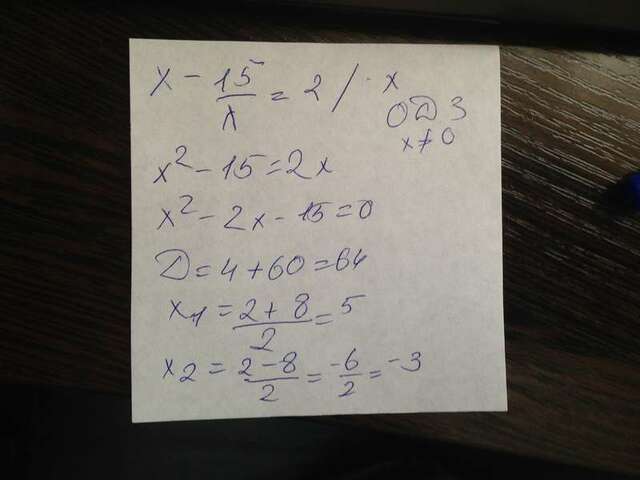 x - 15/x = 2 / · x
ОДЗ
x ≠ 0
x² - 15 = 2x
x² - 2x - 15 = 0
Д = 4 + 60 = 64
x₁ = (2 + 8)/2 = 5
x₂ = (2 - 8)/2 = -6/2 = -3